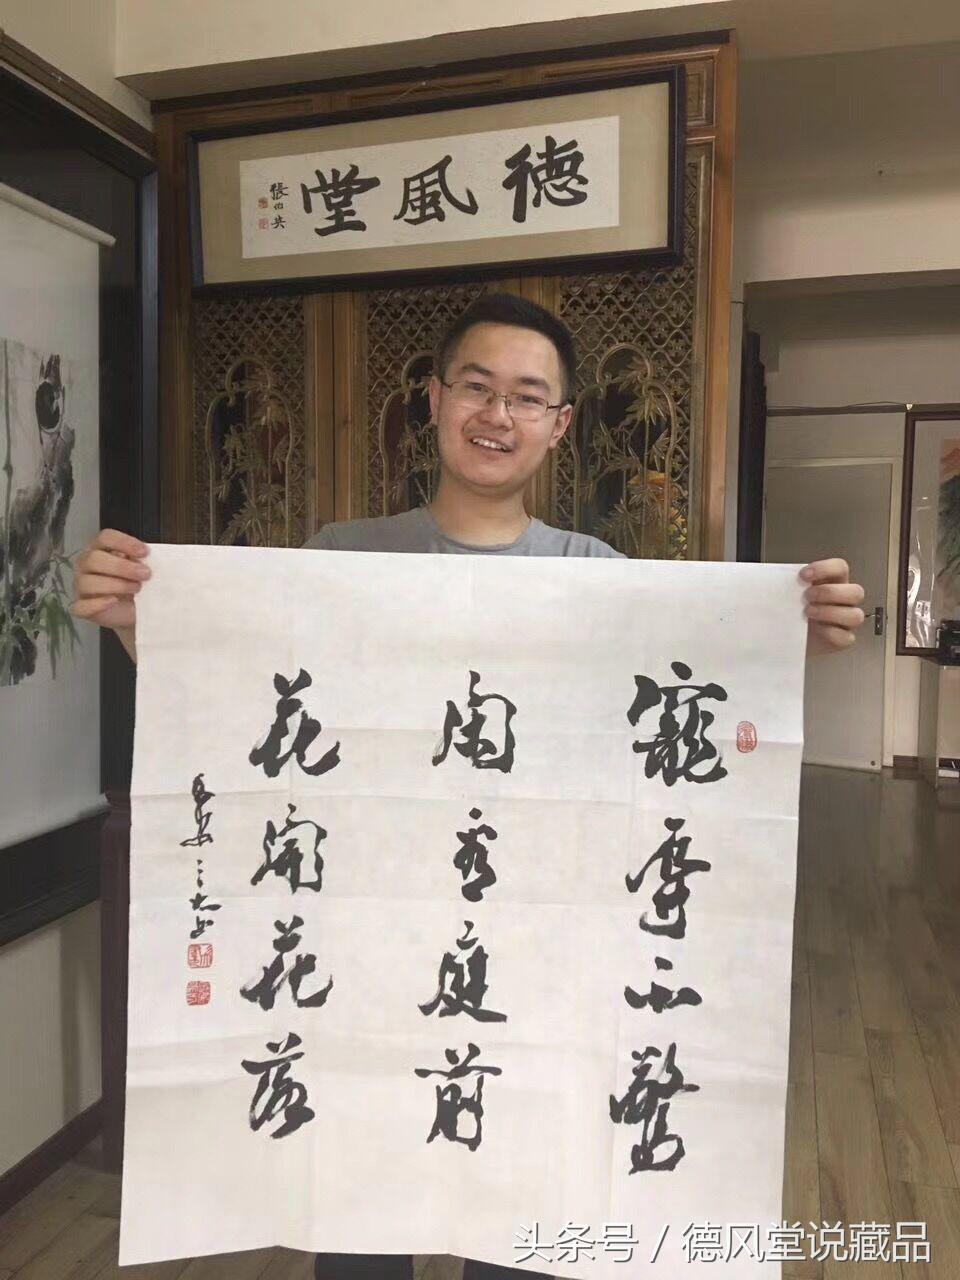 德風堂
張伯英
寵辱不驚
閑看庭前
花開花落
头条号／德风堂说藏品